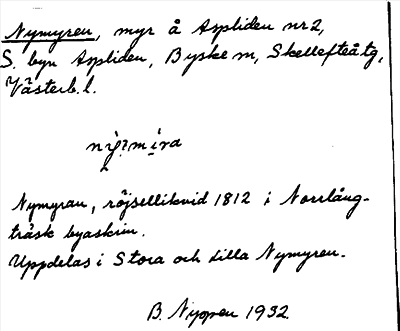 Nymyren, myr å Aspliden nr 2,
S. byn Aspliden, Byske sn, Skellefteå tg,
Västerb. l.
Nymyran, röjsellikvid 1812 i Norrlång-
träsk byaskrin.
Uppdelas i Stora och Lilla Nymyren.
B. Nyppen 1932.